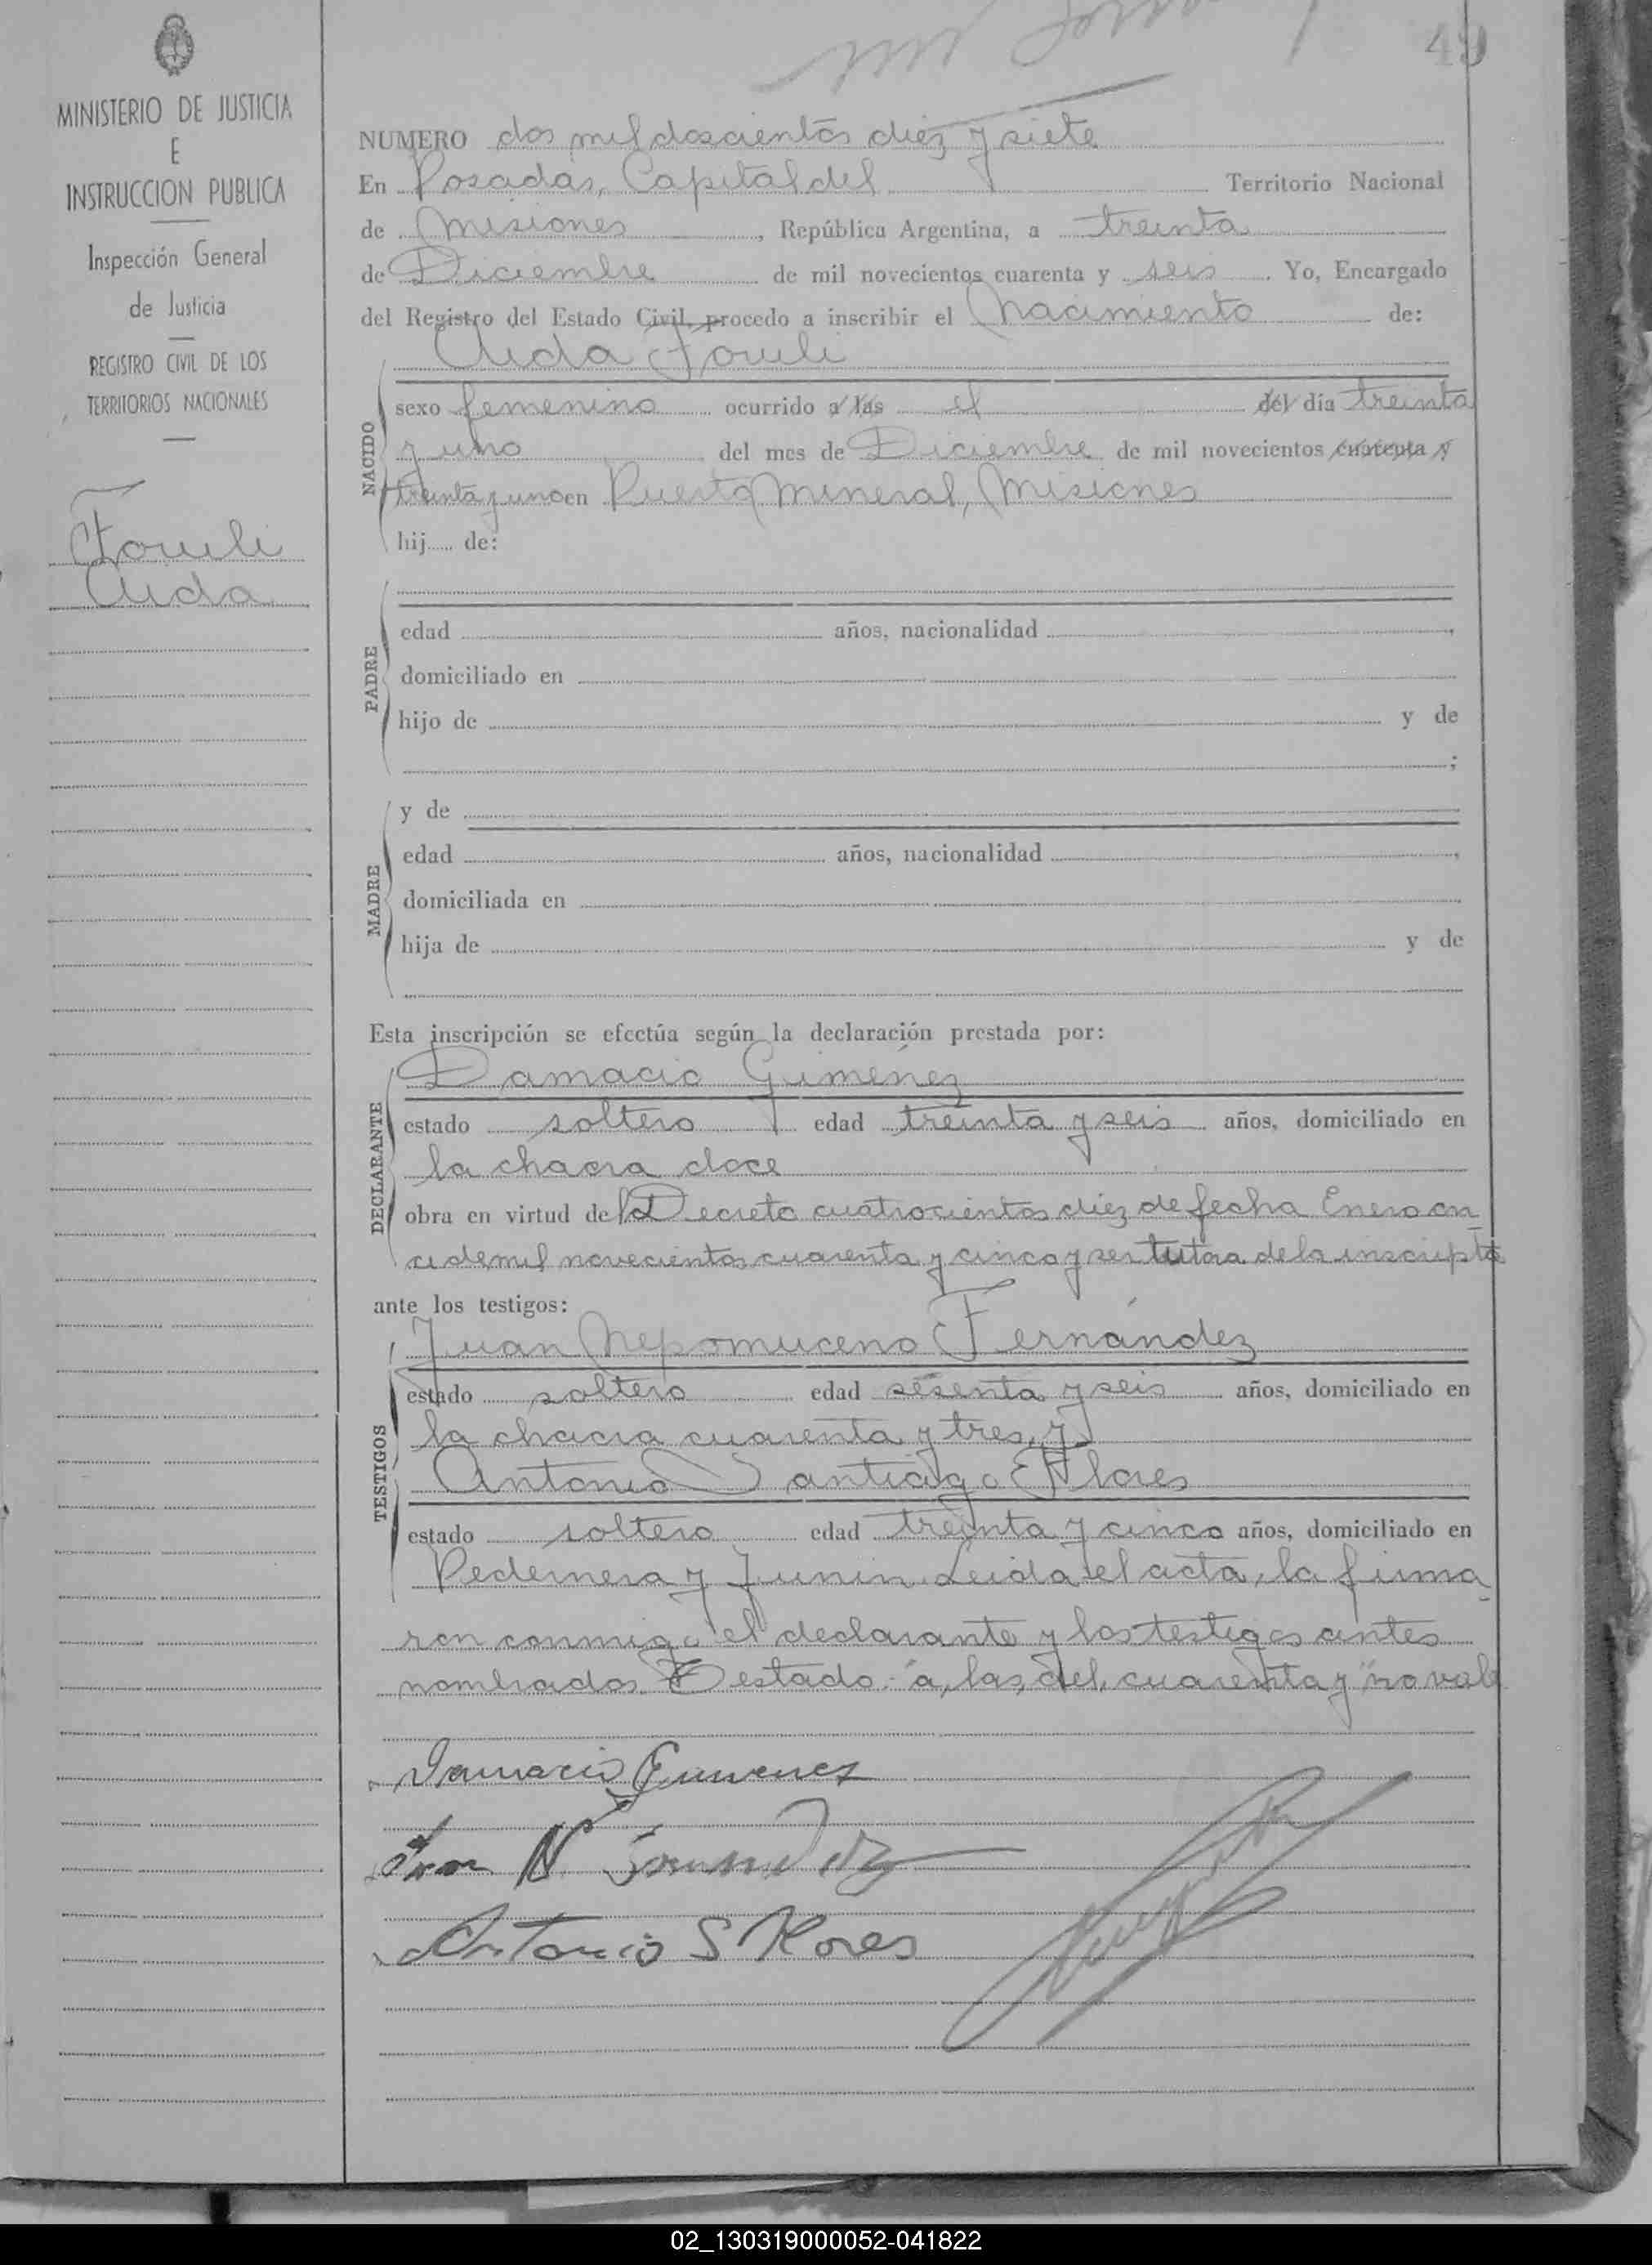 49
MINISTERIO DE JUSTICIA
E
INSTRUCCION PUBLICA
Inspección General
de Justicia
REGISTRO CIVIL DE LOS
TERRITORIOS NACIONALES
Fouli
Aida
NUMERO dos mil doscientos diez y siete
En Posadas, Capital del Territorio Nacional
de Misiones, República Argentina, a treinta
de Diciembre de mil novecientos cuarenta y seis. Yo, Encargado
del Registro del Estado Civil, procedo a inscribir el Nacimiento de:
Aida Fouli
NACIDO
sexo femenino ocurrido a las el del día treinta
y uno del mes de Diciembre de mil novecientos cuarenta y
treinta y uno en Puerto Mineral, Misiones
hij de:
PADRE
edad años, nacionalidad ,
domiciliado en
hijo de y de
;
MADRE
y de
edad años, nacionalidad ,
domiciliada en
hija de y de
Esta inscripción se efectúa según la declaración prestada por:
DECLARANTE
Damacio Giménez
estado soltero edad treinta y seis años, domiciliado en
la chacra doce
obra en virtud del Decreto cuatrocientos diez de fecha Enero on
ce de mil novecientos cuarenta y cinco y ser tutora de la inscripta
ante los testigos:
TESTIGOS
Juan Nepomuceno Fernández
estado soltero edad sesenta y seis años, domiciliado en
la chacra cuarenta y tres, y
Antonio Santiago Flores
estado soltero edad treinta y cinco años, domiciliado en
Pedernera y Junin. Leida el acta, la firma
ron conmigo el declarante y los testigos antes
nombrados. Testado: "a, las, del, cuarenta y" no vale
Damacio Gimenez
Juan N. Fernandez
Antonio S Flores
02_130319000052-041822